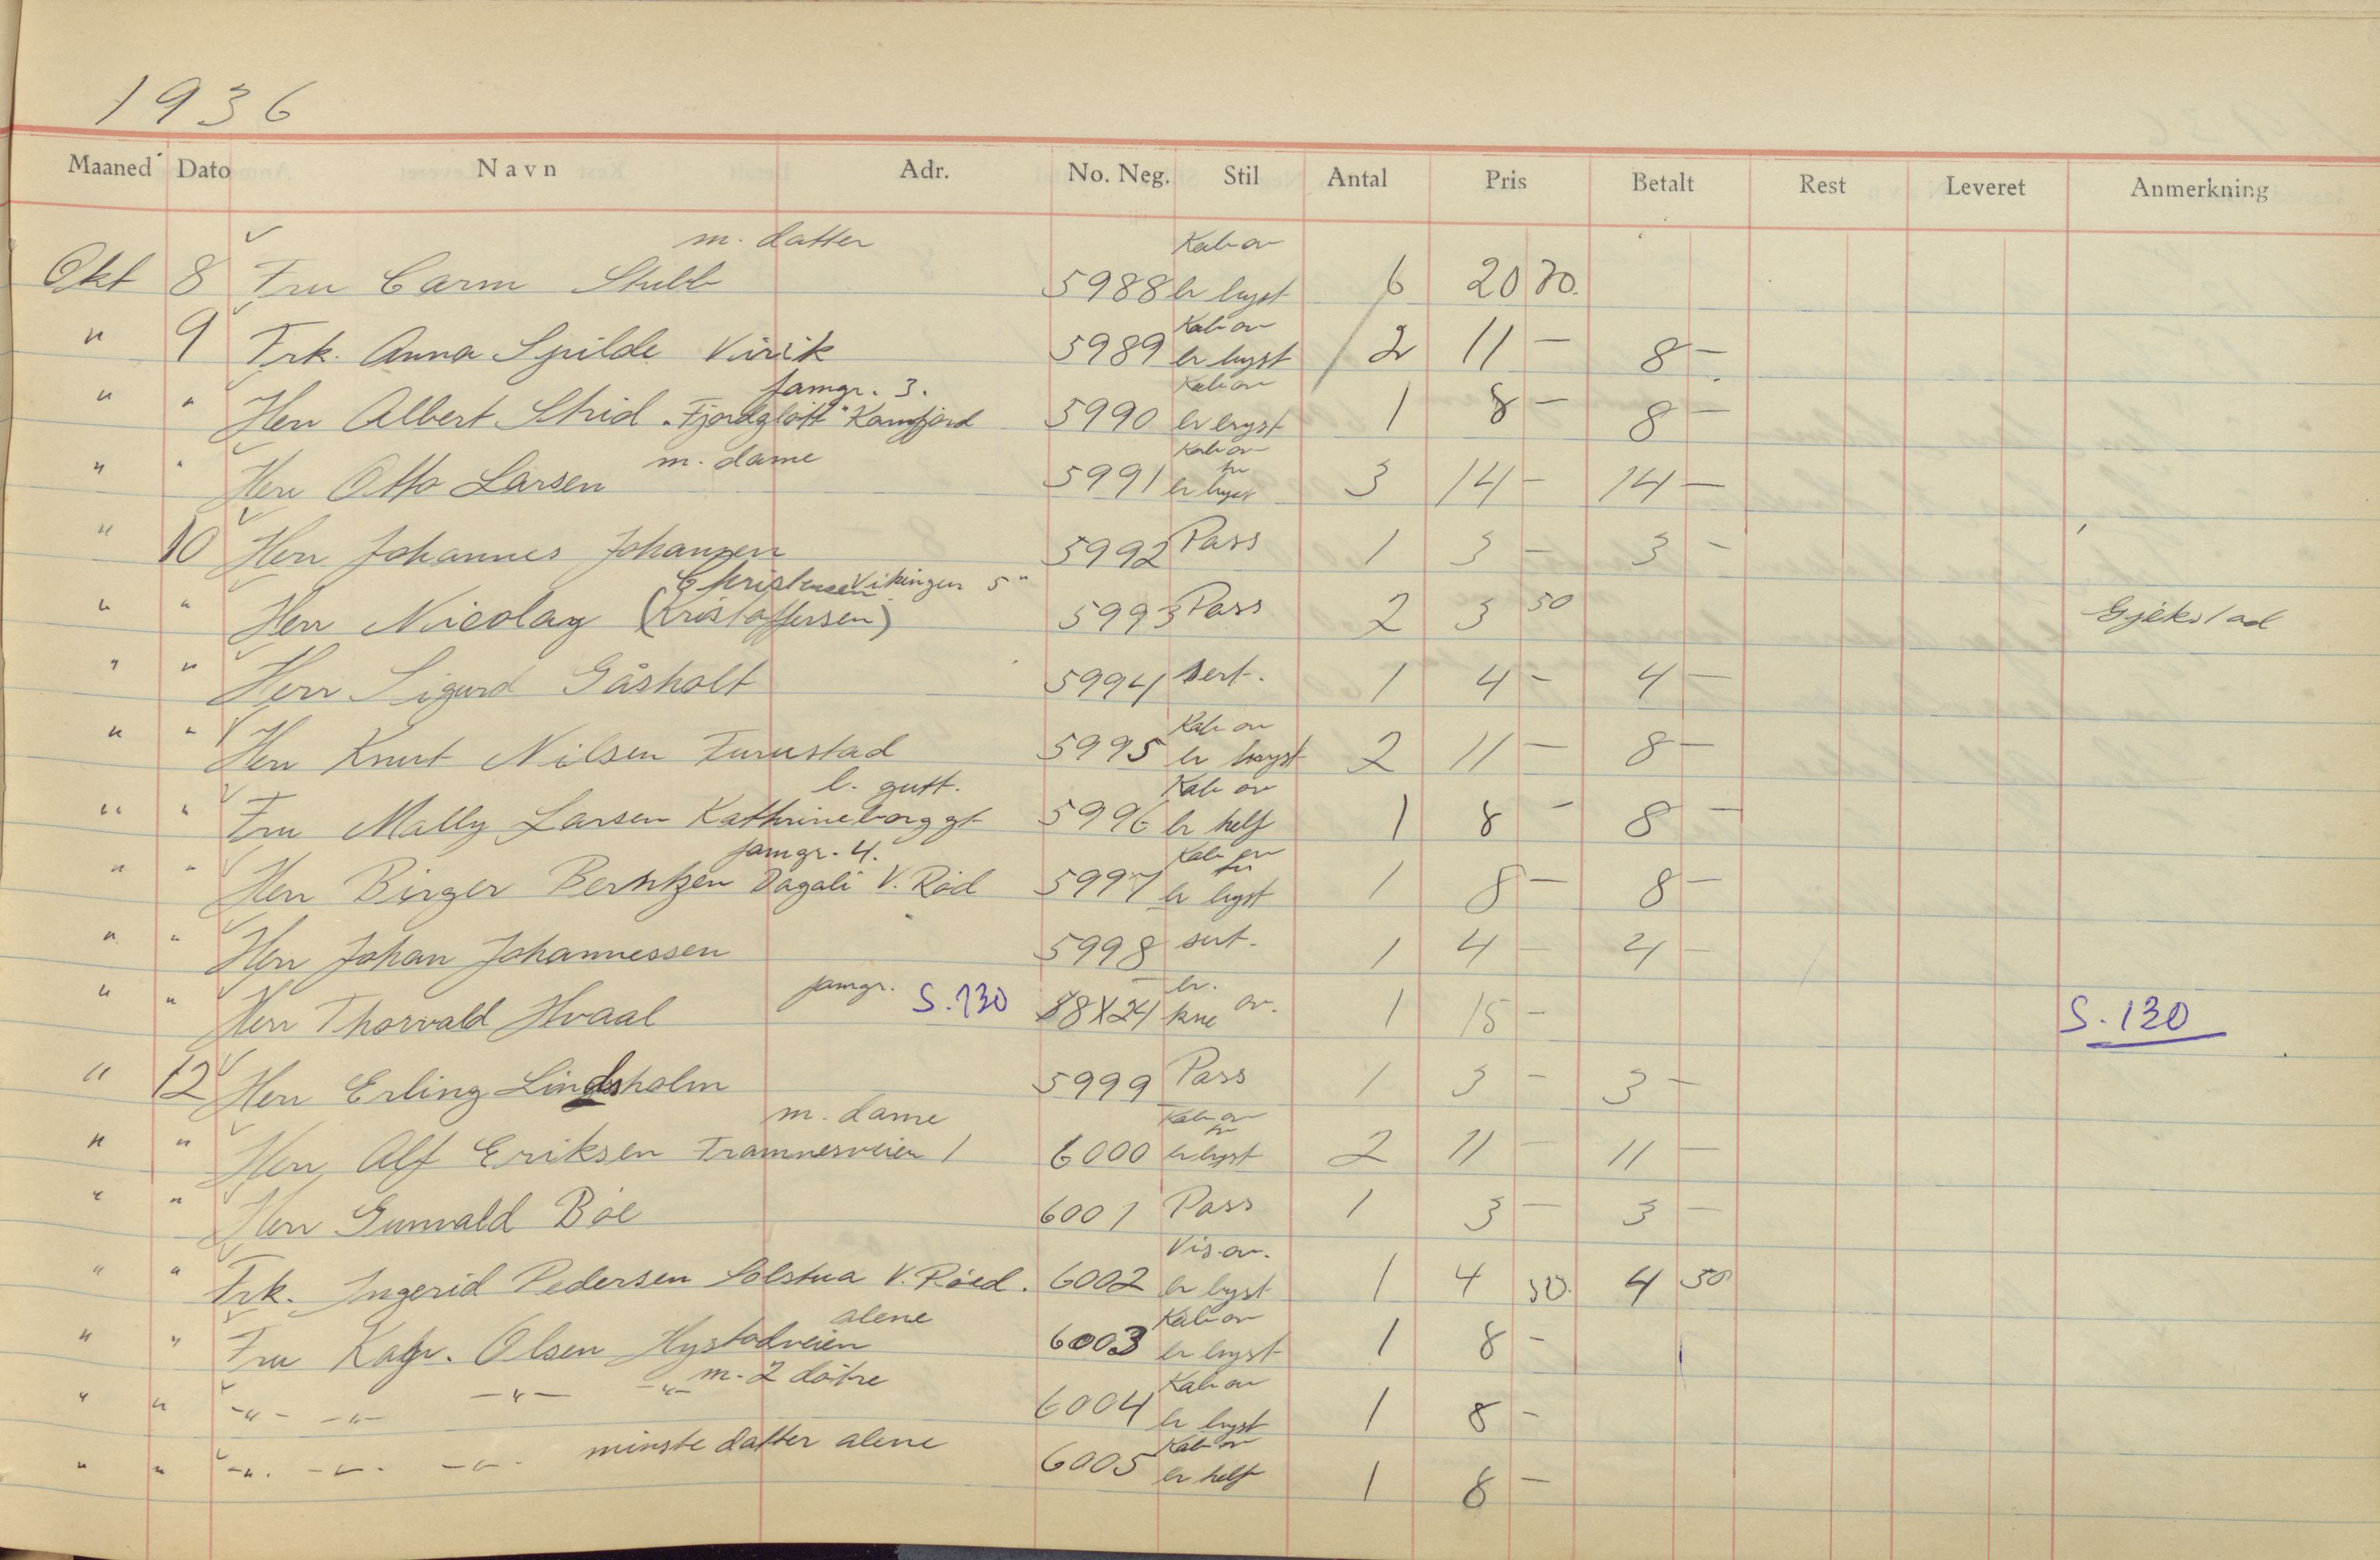 1936
Maaned Dato Navn Adr. No. Neg. Stil Antal Pris Betalt Rest Leveret Anmerkning
m. datter Kab ov
Okt 8 Fru Carm Stubb 5988 br bryst 6 20 70.
Kab ov
" 9 Frk. Anna Spilde Virik 5989 br bryst 2 11 — 8 —
famgr. 3. Kab ov
" " Herr Albert Strid "Fjordglött" Kamfjord 5990 br bryst 1 8 — 8 —
m. dame Kab ov
" " Herr Otto Larsen 5991 br bryst 3 14 — 14 —
" 10 Herr Johannes Johansen 5992 Pass 1 3 — 3 —
Christensen Vikingen 5"
" " Herr Nicolay (Kristoffersen) 5993 Pass 2 3 50 Gjekstad
" " Herr Sigurd Gåsholt 5994 sert. 1 4 — 4 —
Kab ov
" " Herr Knut Nilsen Furustad 5995 br bryst 2 11 — 8 —
l. gutt. Kab ov
" " Fru Mally Larsen Kathrineborggt 5996 br helf 1 8 — 8 —
famgr. 4. Kab ov
" " Herr Birger Berntzen Dagali V. Röd 5997 br bryst 1 8 — 8 —
" " Herr Johan Johannessen 5998 sert. 1 4 — 4 —
famgr. br.
" " Herr Thorvald Hvaal S.130 18X24 kne ov. 1 15 — S.130
" 12 Herr Erling Lindsholm 5999 Pass 1 3 — 3 —
m. dame Kab ov
" " Herr Alf Eriksen Framnesveien 1 6000 br bryst 2 11 — 11 —
" " Herr Gunvald Böe 6001 Pass 1 3 — 3 —
Vis. ov.
" " Frk. Ingerid Pedersen Solstua V. Röed. 6002 br bryst 1 4 50. 4 50
alene Kab ov
" " Fru Kagr. Olsen Hystadveien 6003 br bryst 1 8 —
m. 2 dötre Kab ov
" " —"— —"— —"— —"— 6004 br bryst 1 8 —
minste datter alene Kab ov
" " —". —"— —"— 6005 br helf 1 8 —